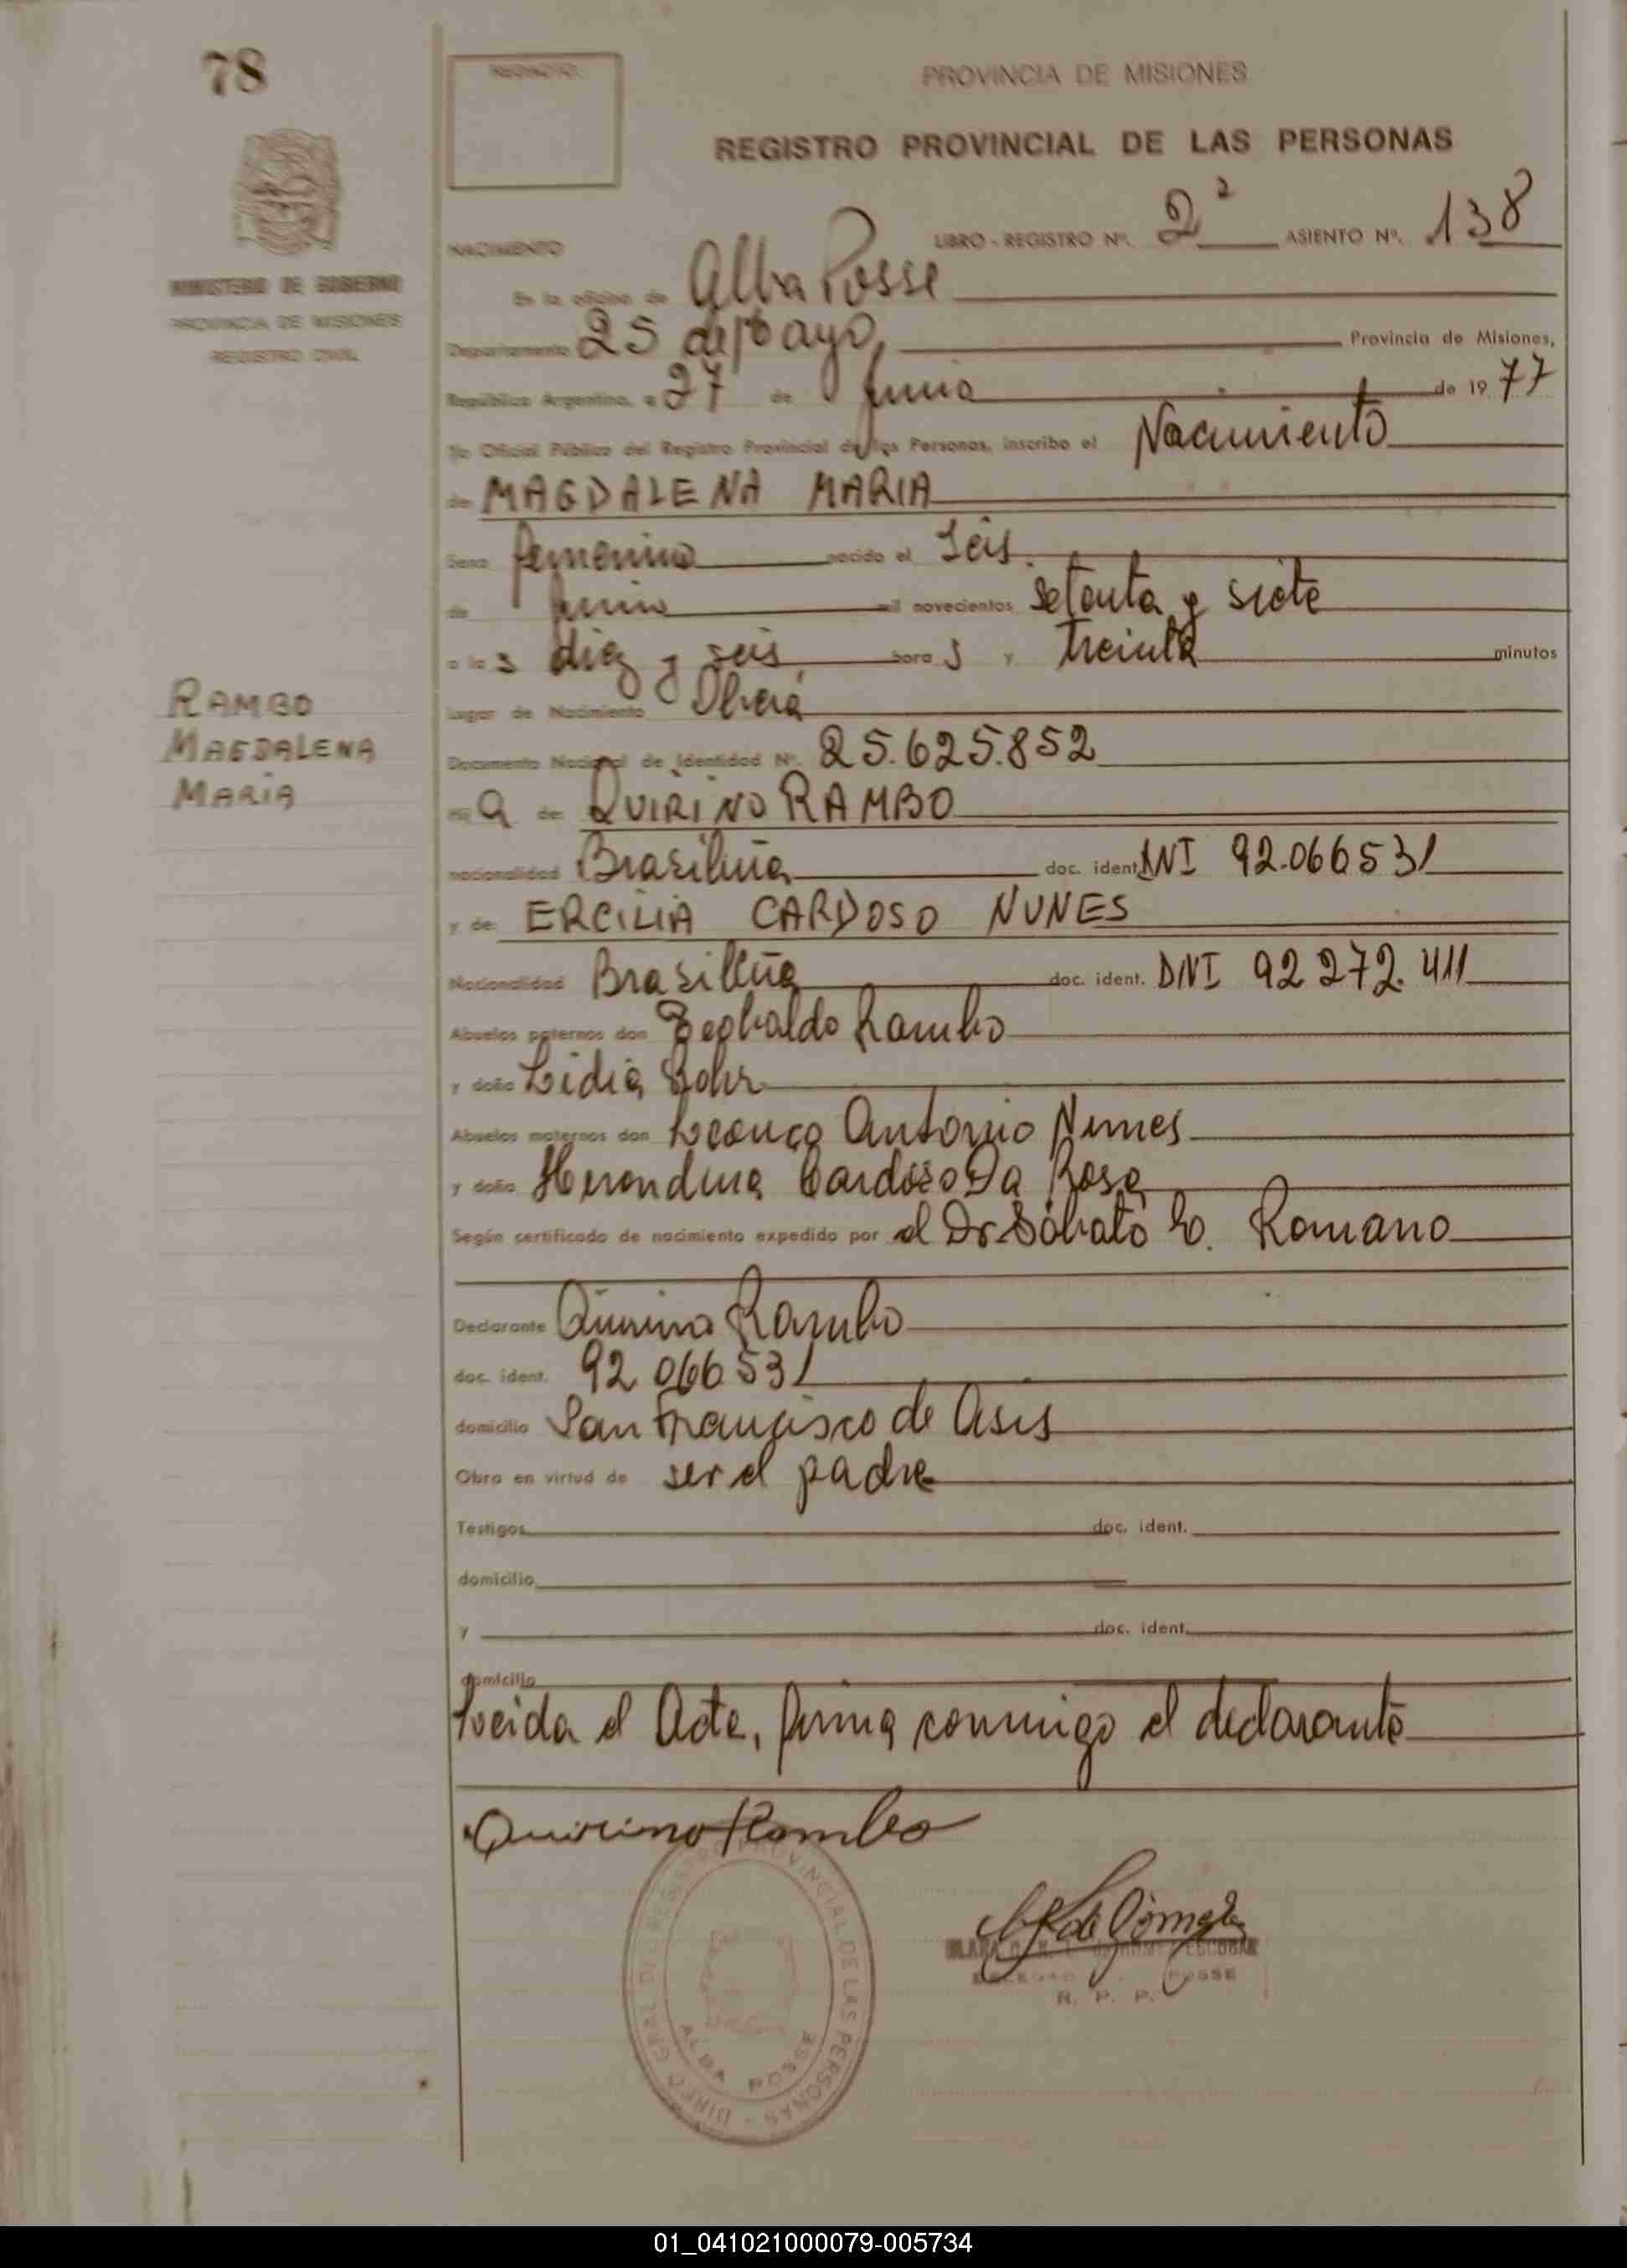 78
PROVINCIA DE MISIONES
REGISTRO PROVINCIAL DE LAS PERSONAS
MINISTERIO DE GOBIERNO
PROVINCIA DE MISIONES
REGISTRO CIVIL
NACIMIENTO LIBRO - REGISTRO Nº. 2ª ASIENTO Nº. 138
En la oficina de Alba Posse
Departamento 25 de Mayo, Provincia de Misiones,
República Argentina, a 27 de Junio de 1977
Yo Oficial Público del Registro Provincial de las Personas, inscribo el Nacimiento
de MAGDALENA MARIA
Sexo femenino nacido el Seis
de junio mil novecientos setenta y siete
a las diez y seis horas y treinta minutos
RAMBO
MAGDALENA
MARIA
Lugar de Nacimiento Oberá
Documento Nacional de Identidad Nº. 25.625.852
Hija de: QUIRINO RAMBO
nacionalidad Brasileña doc. ident. DNI 92.066531
y de: ERCILIA CARDOSO NUNES
Nacionalidad Brasileña doc. ident. DNI 92 272.411
Abuelos paternos don Teobaldo Rambo
y doña Lidia Bohr
Abuelos maternos don Antonio Nunes
y doña Cardozo Da Rosa
Según certificado de nacimiento expedido por el Dr. Sábato Romano
Declarante Quirino Rambo
doc. ident. 92 066 531
domicilio San Francisco de Asis
Obra en virtud de ser el padre
Testigos doc. ident.
domicilio
y doc. ident.
domicilio
Leida el Acta, firma conmigo el declarante
Quirino Rambo
ESCOBAR
POSSE
R. P. P.
DIREC. GRAL. DEL REGISTRO PROVINCIAL DE LAS PERSONAS
ALBA POSSE
01_041021000079-005734